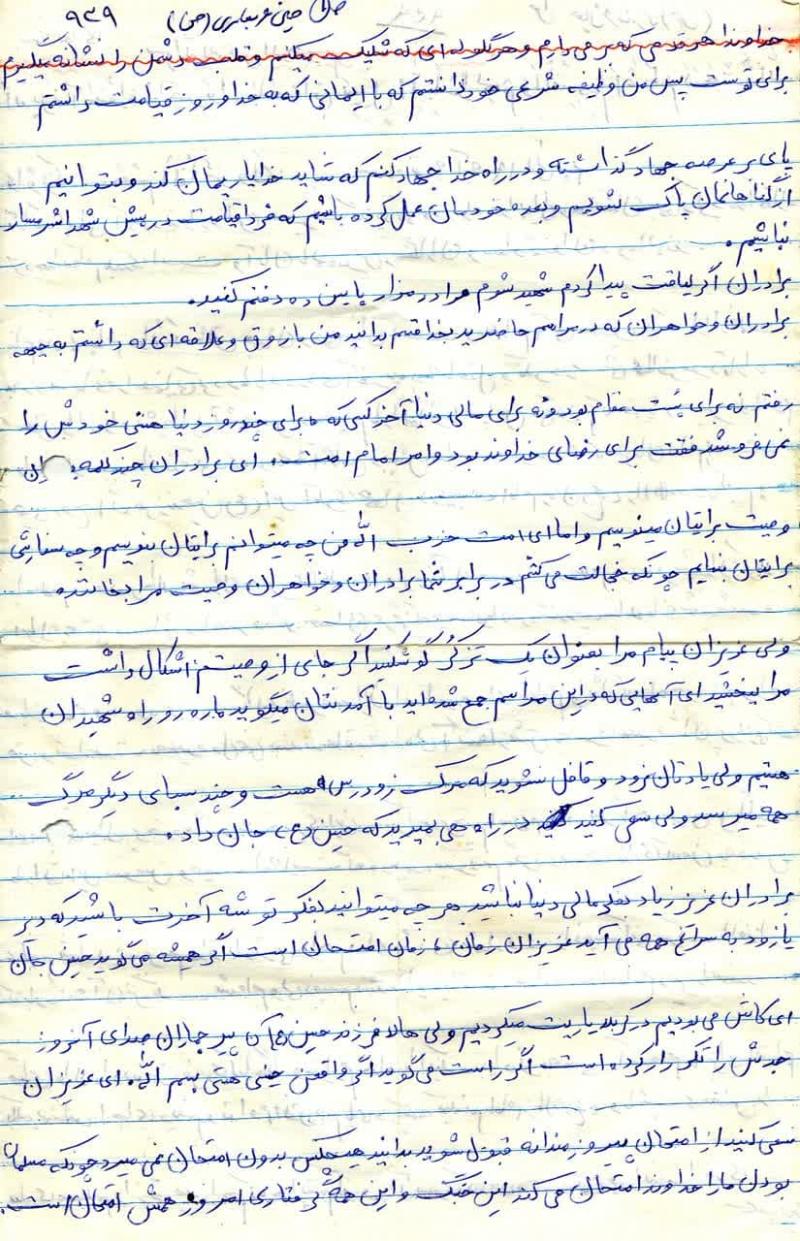 ۹۳۹
خداوندا هر قدمی که بر می دارم و هر گلوله ای که شلیک میکنم و قلب دشمن را نشانه میگیرم
برای توست پس من وظیفه شرعی خود دانستم که با ایمانی که به خدا و روز قیامت داشتم
پای بر عرصه جهاد گذاشته و در راه خدا جهاد کنم که شاید خدا یاریمان کند و بتوانیم
از گناهانمان پاک بشویم و بعهده خودمان عمل کرده باشیم که فردا قیامت در پیش شهدا شرمسار
نباشیم.
برادران اگر لیاقت پیدا کردم شهید شوم مرا در مزار پایین ده دفنم کنید.
برادران و خواهران که در مراسم حاضرید بخدا قسم بدانید من با ذوق و علاقه ای که داشتم به جبهه
رفتم نه برای پست مقام بود و نه برای مالی دنیا آخر کسی که برای چند روز دنیا هستی خودش را
نمی فروشد فقت برای رضای خداوند بود و امر امام است. ای برادران چند کلمه این
وصیت برایتان مینویسم و اما ای امت حزب الله من چه میتوانم برایتان بنویسم و چه سفارشی
برایتان بنمایم چونکه خجالت می کشم در برابر شما برادران و خواهران وصیت مرا بخانند.
ولی عزیزان پیام مرا بعنوان یک تزکر گوش کنید اگر جای از وصیتم اشکال داشت
مرا ببخشید ای آنهایی که در این مراسم جمع شده اید با آمدنتان میگوید ما ره رو راه شهیدان
هستیم ولی یادتان نرود و قافل نشوید که مرگ زودرس هست و چند سبای دیگر مرگ
همه میرسد ولی سعی کنید در راهی بمیرید که حسین (ع) جان داد.
برادران عزیز زیاد بفکر مالی دنیا نباشید هر چه میتوانید بفکر توشه آخرت باشید که دیر
یا زود به سراغ همه می آید عزیزان زمان، زمان امتحان است اگر همیشه می گوید حسین جان
ای کاش می بودیم در کربلا یاریت میکردیم ولی حالا فرزند حسین (ع) آن پیر جماران صدای آنروز
جدش را تکرار کرده است اگر راست می گوید اگر واقعن حسینی هستی بسم الله. ای عزیزان
سعی کنید از امتحان پیروزمندانه قبول شوید بدانید هیچکس بدون امتحان نمی میرد چونکه مسلمان
بودن ما را خداوند امتحان می کند این جنگ و این همه گرفتاری امروز همش امتحان است.